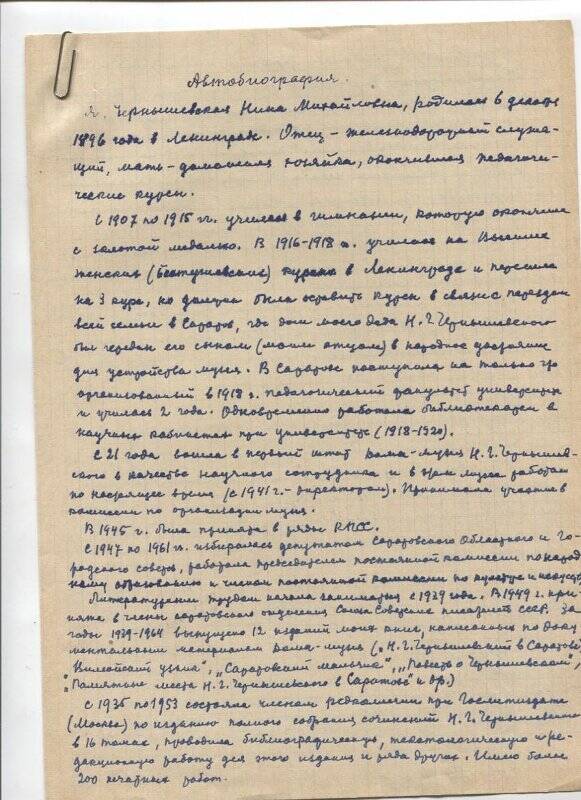 Автобиография.
Я, Чернышевская Нина Михайловна, родилась 6 декабря
1896 года в Ленинграде. Отец – железнодорожный служа-
щий, мать – домашняя хозяйка, окончившая педагоги-
ческие курсы.
С 1907 по 1915 гг. училась в гимназии, которую окончила
с золотой медалью. В 1916-1918 гг. училась на Высших
женских (Бестужевских) курсах в Ленинграде и перешла
на 3 курс, но должна была оставить курсы в связи с переездом
всей семьи в Саратов, где дом моего деда Н.Г. Чернышевского
был передан его сыном (моим отцом) в народное достояние
для устройства музея. В Саратове поступила на только что
организованный в 1918 г. педагогический факультет университета
и училась 2 года. Одновременно работала библиотекарем в
научных кабинетах при университете (1918-1920).
С 21 года вошла в первый штат Дома-музея Н.Г. Чернышев-
ского в качестве научного сотрудника и в этом музее работаю
по настоящее время (с 1941 г. – директором). Принимала участие в
комиссии по организации музея.
В 1945 г. была принята в ряды КПСС.
С 1947 по 1961 гг. избиралась депутатом Саратовского Областного и Го-
родского советов, работала председателем постоянной комиссии по народ-
ному образованию и членом постоянной комиссии по культуре и искусству.
Литературным трудом начала заниматься с 1929 года. В 1949 г. при-
нята в члены саратовского отделения Союза Советских писателей СССР. За
годы 1939-1964 выпущено 12 изданий моих книг, написанных по доку-
ментальным материалам Дома-музея („Н.Г. Чернышевский в Саратове",
„Вилюйский узник", „Саратовский мальчик", „Повесть о Чернышевском",
„Памятные места Н.Г. Чернышевского в Саратове" и др.)
С 1936 по 1953 состояла членом редколлегии при Гослитиздате
(Москва) по изданию полного собрания сочинений Н.Г. Чернышевского
в 16 томах, проводила библиографическую, текстологическую и ре-
дакционную работу для этого издания и ряда других. Имею более
200 печатных работ.